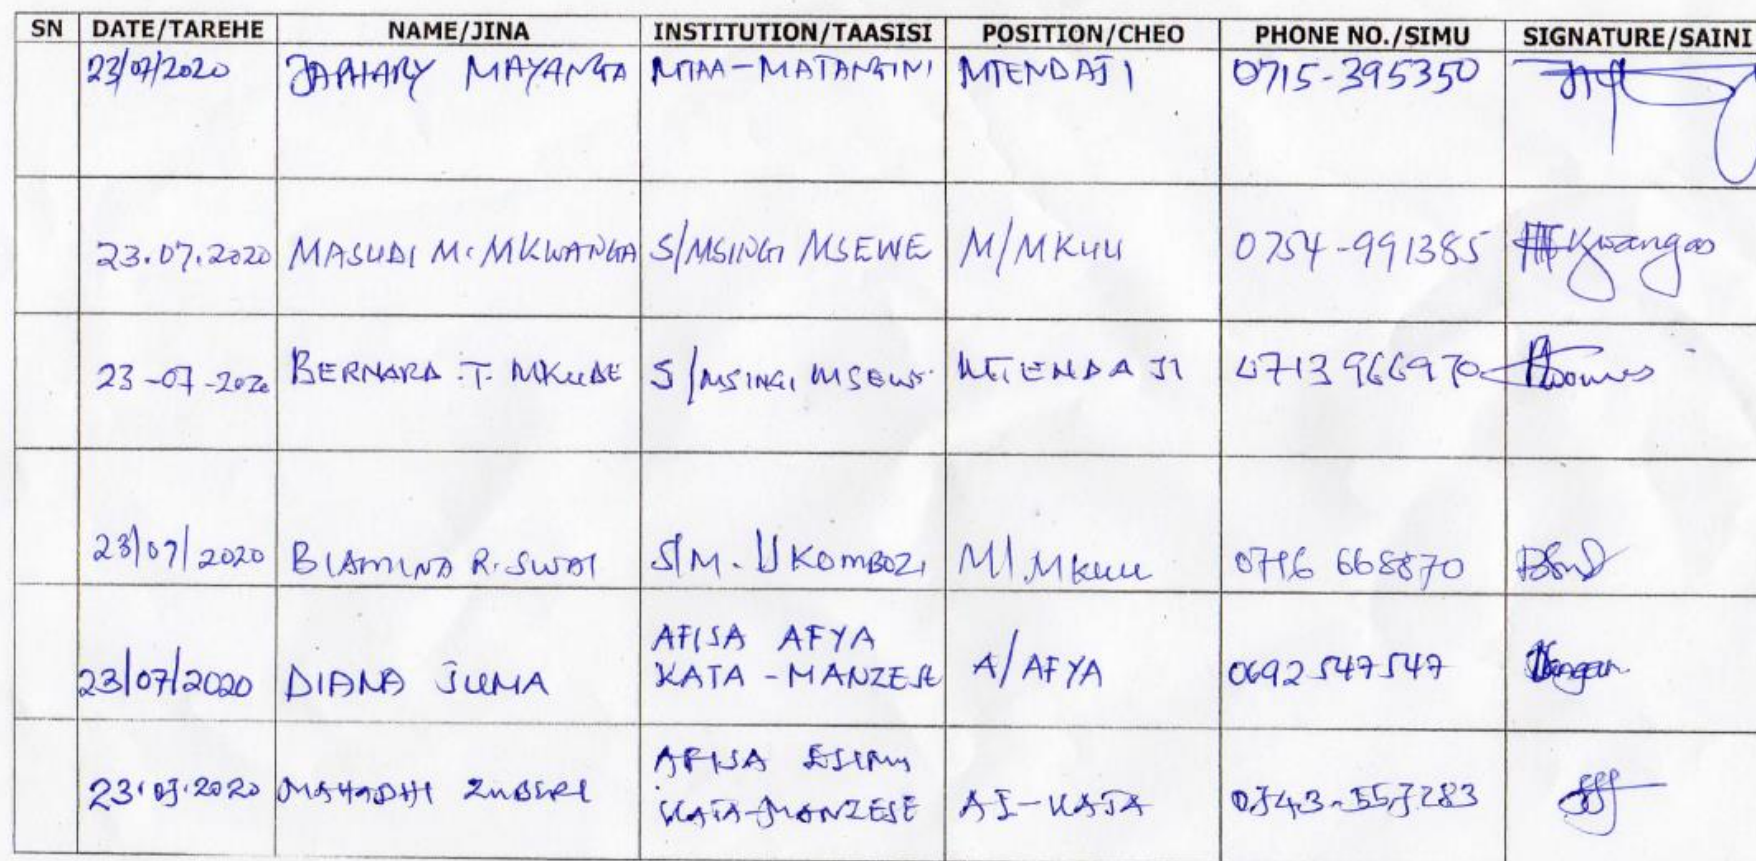 SN DATE/TAREHE NAME/JINA INSTITUTION/TAASISI POSITION/CHEO PHONE NO./SIMU SIGNATURE/SAINI
23/07/2020 JAPHARY MAYANGA MTAA-MATANGINI MTENDAJI 0715-395350
23.07.2020 MASUDI M. MKWANGA S/MSINGI MSEWE M/MKUU 0754-991385
23-07-2020 BERNARD .T. MKUDE S/MSINGI MSEWE MTENDAJI 0713 966970
23/07/2020 R. SWAI S/M. UKOMBOZI M/.MKUU 0716 668870
AFISA AFYA
23/07/2020 DIANA JUMA KATA-MANZESE A/AFYA 0692 547547
AFISA ELIMU
23.07.2020 MAHADHI ZUBERI KATA-MANZESE 0743-557283